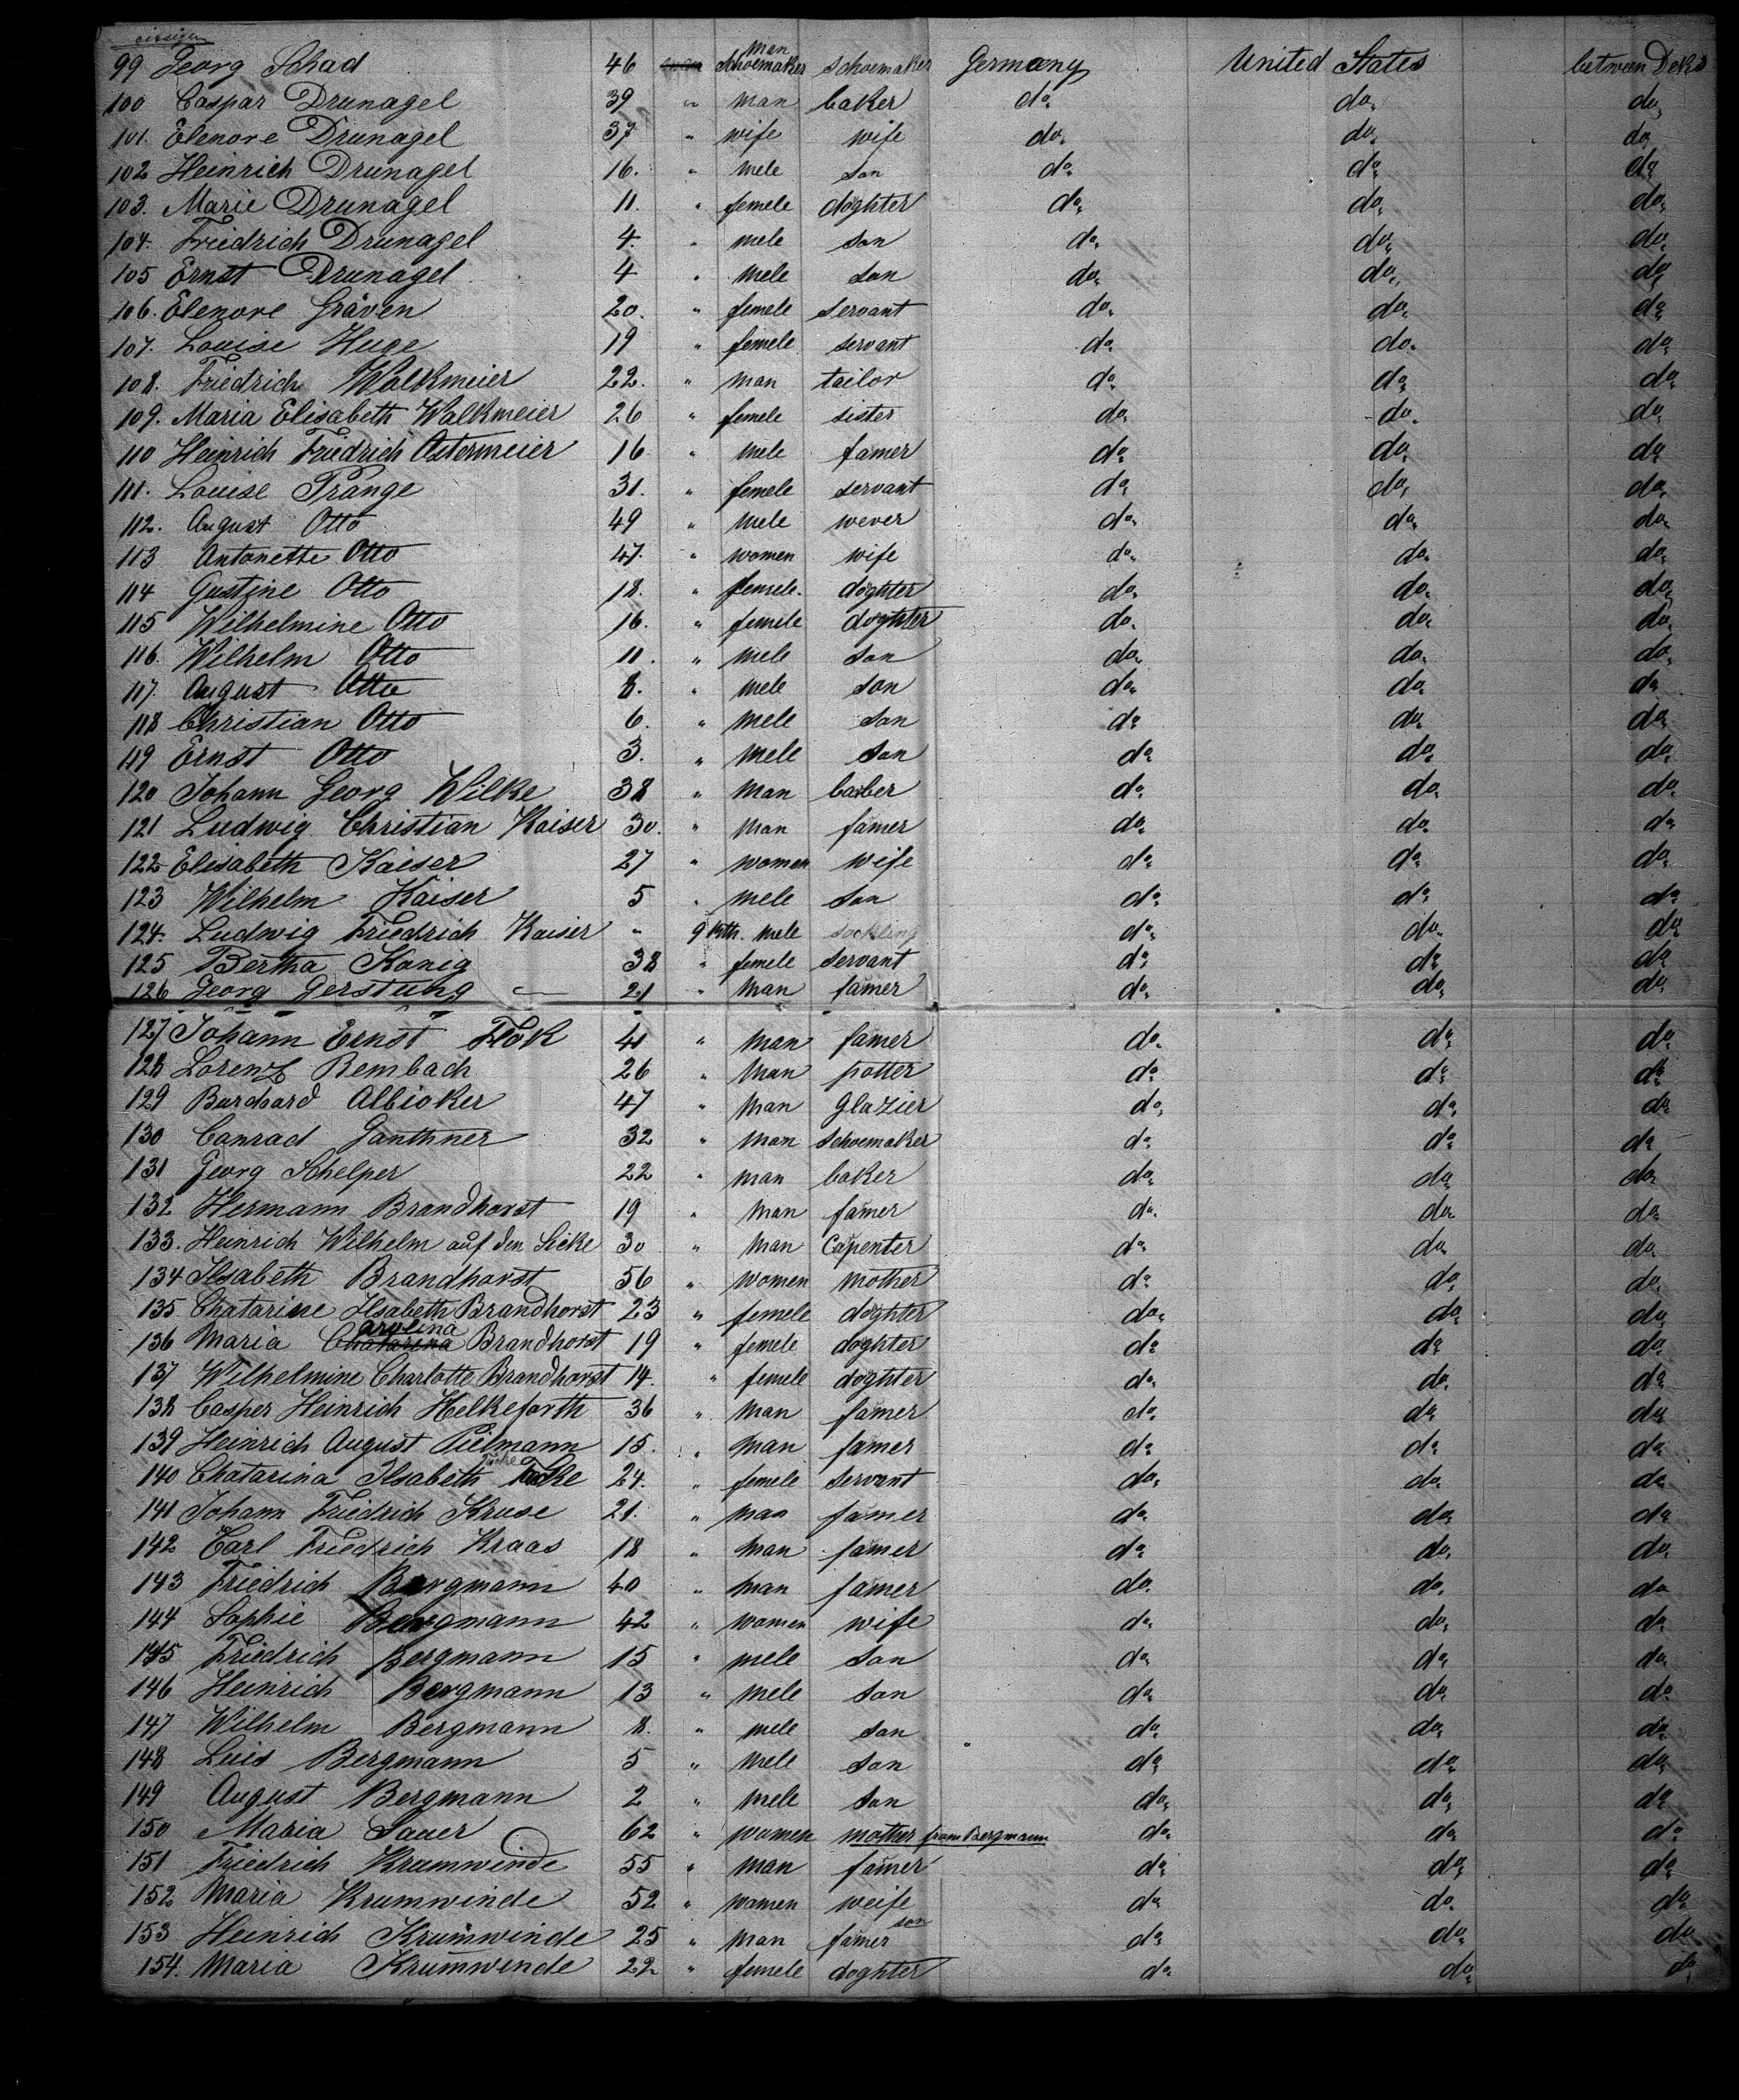 99 Georg Schad 46 man Schoemaker Schoemaker Germany United States between Deks
100 Caspar Drunagel 39 " man baker do. do. do.
101. Elenore Drunagel 37 " wife wife do. do. do.
102 Heinrich Drunagel 16. " mele son do. do. do.
103. Marie Drunagel 11. " femele doghter do. do. do.
104. Friedrich Drunagel 4. " mele son do. do. do.
105 Ernst Drunagel 4 " mele son do. do. do.
106. Elenore Gräven 20. " femele servant do. do. do.
107. Louise Huge 19 " femele servant do. do. do.
108. Friedrich Walkmeier 22. " man tailor do. do. do.
109. Maria Elisabeth Walkmeier 26 " femele sister do. do. do.
110 Heinrich Friedrich Ostermeier 16 " mele famer do. do. do.
111. Louise Prange 31. " femele servant do. do. do.
112. August Otto 49 " mele wever do. do. do.
113 Antonette Otto 47. " women wife do. do. do.
114 Gustine Otto 18. " femele. doghter do. do. do.
115 Wilhelmine Otto 16. " femele doghter do. do. do.
116. Wilhelm Otto 11. " mele son do. do. do.
117. August Otto 8. " mele son do. do. do.
118 Christian Otto 6. " mele son do. do. do.
119 Ernst Otto 3. " mele son do. do. do.
120 Johann Georg Wilke 38 " man barber do. do. do.
121 Ludwig Christian Kaiser 30. " man famer do. do. do.
122 Elisabeth Kaiser 27 " women wife do. do. do.
123 Wilhelm Kaiser 5 " mele son do. do. do.
124. Ludwig Friedrich Kaiser - 9 Mth. mele suckling do. do. do.
125 Bertha Konig 38 " femele servant do. do. do.
126 Georg Gerstung 21 " man famer do. do. do.
127 Johann Ernst Flök 41 " man famer do. do. do.
128 Lorenz Rembach 26 " man potter do. do. do.
129 Burchard Albioker 47 " man Glazier do. do. do.
130 Conrad Ganthner 32 " man schoemaker do. do. do.
131 Georg Schelper 22 " man baker do. do. do.
132 Hermann Brandhorst 19 " man famer do. do. do.
133. Heinrich Wilhelm auf den Sicke 30 " man Capenter do. do. do.
134 Ilsabeth Brandhorst 56 " women mother do. do. do.
135 Chatarine Ilsabeth Brandhorst 23 " femele doghter do. do. do.
arolina
136 Maria Chatarina Brandhorst 19 " femele doghter do. do. do.
137 Wilhelmine Charlotte Brandhorst 14. " femele doghter do. do. do.
138 Casper Heinrich Helkeforth 36 " man famer do. do. do.
139 Heinrich August Pielmann 15. " man famer do. do. do.
140 Chatarina Ilsabeth 24. " femele servant do. do. do.
141 Johann Friedrich Kruse 21. " man famer do. do. do.
142 Carl Friedrich Kraas 18 " man famer do. do. do.
143 Friedrich Bergmann 40 " man famer do. do. do.
144 Sophie Bergmann 42 " women wife do. do. do.
145 Friedrich Bergmann 15 " mele son do. do. do.
146 Heinrich Bergmann 13 " mele son do. do. do.
147 Wilhelm Bergmann 8. " mele son do. do. do.
148 Luis Bergmann 5 " mele son do. do. do.
149 August Bergmann 2 " mele son do. do. do.
150 Maria Sauer 62 " women mother from Bergmann do. do. do.
151 Friedrich Krumwinde 55 " man famer do. do. do.
152 Maria Krumwinde 52 " women weife do. do. do.
153 Heinrich Krumwinde 25 " man famer son do. do. do.
154. Maria Krumwinde 22 " femele doghter do. do. do.